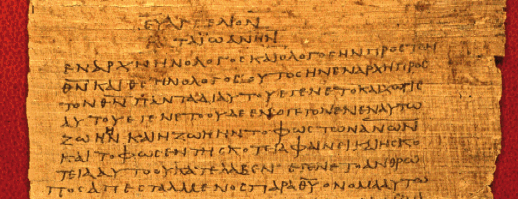 ΕΥΑΓΓΕΛΙΟΝ
ΤΑΪΩΑΝΗΝ
ΕΝΑΡΧΗΗΝΟΛΟΓΟϹΚΑΙΟΛΟΓΟϹΗΝΠΡΟϹΤΟΝ
Θ̅Ν̅ΚΑΙΘ̅Ϲ̅ΗΝΟΛΟΓΟϹΟΥΤΟϹΗΝΕΝΑΡΧΗΠΡΟϹ
ΤΟΝΘ̅Ν̅ΠΑΝΤΑΔΙΑΥΤΟΥΕΓΕΝΕΤΟΚΑΙΧΩΡΙϹ
ΑΥΤΟΥΕΓΕΝΕΤΟΟΥΔΕΕΝΟΓΕΓΟΝΕΝΕΝΑΥΤΩ
ΖΩΗΗΝΚΑΙΗΖΩΗΗΝΤΟΦΩϹΤΩΝΑ̅Ν̅Ω̅Ν̅
ΚΑΙΤΟΦΩϹΕΝΤΗϹΚΟΤΕΙΑΦΑΙΝΕΙΚΑΙΗϹΚΟ
ΤΕΙΑΑΥΤΟΟΥΚΑΤΕΛΑΒΕΝ ΕΓΕΝΕΤΟΑΝΘΡΩ
ΠΟϹΑΠΕϹΤΑΛΜΕΝΟϹΠΑΡΑΘ̅Υ̅ΟΝΟΜΑΑΥΤΩ